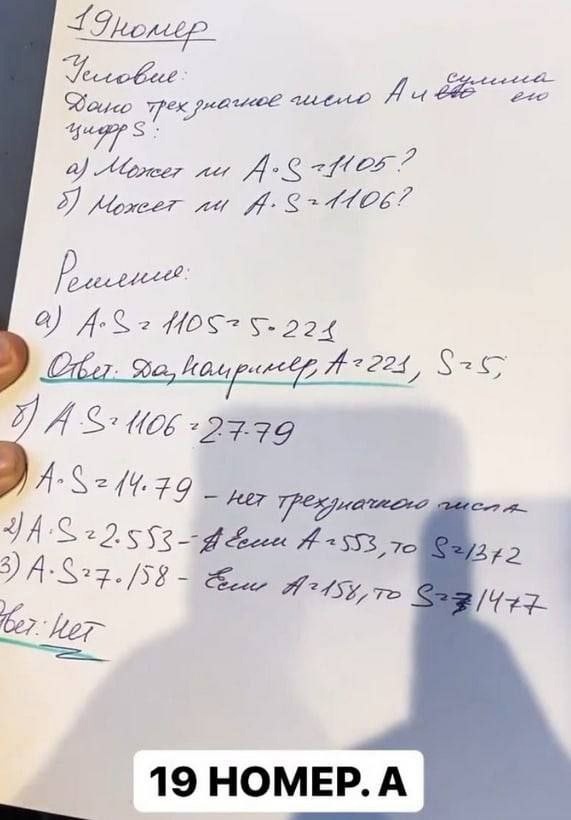 19 номер
Условие:
Дано трехзначное число A и сумма его
цифр S:
а) Может ли A·S=1105?
б) Может ли A·S=1106?
Решение:
а) A·S=1105=5·221
Ответ: Да, например, A=221, S=5,
б) A·S=1106=2·7·79
) A·S=14·79 – нет трехзначного числа
2) A·S=2·553 – Если A=553, то S=13≠2
3) A·S=7·158 – Если A=158, то S=14≠7
Ответ: Нет
19 НОМЕР. А